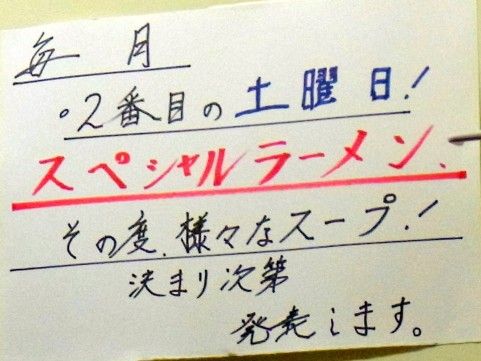 毎月
。2番目の土曜日!
スペシャルラーメン、
その度、様々なスープ!
決まり次第
発表します。